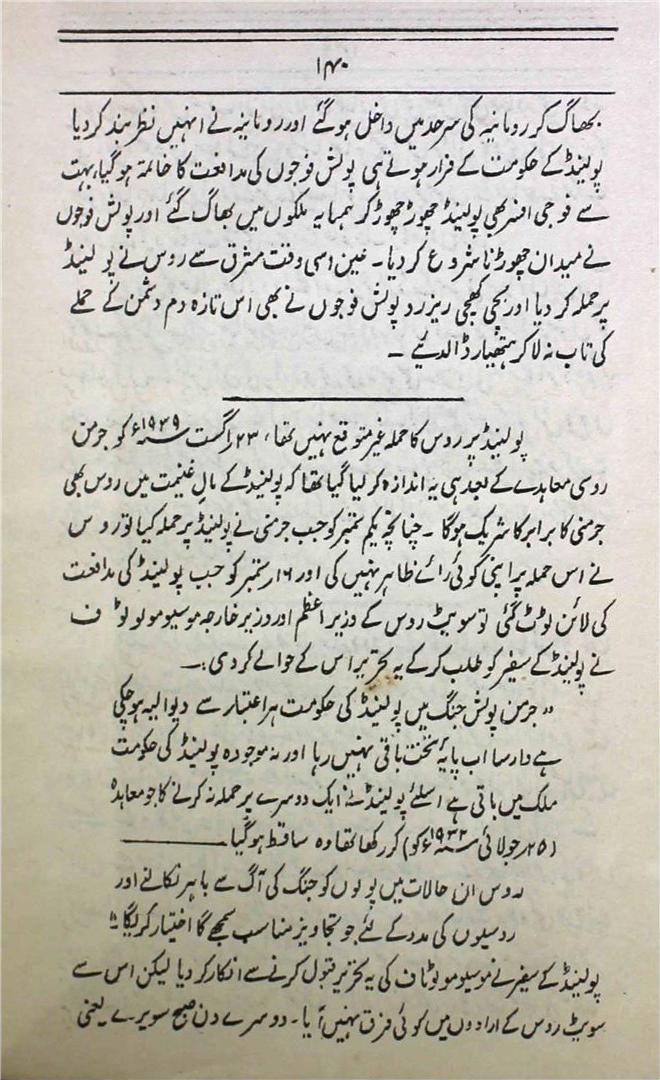 ۱۴۰
بھاگ کر رومانیہ کی سرحد میں داخل ہو گئے اور رومانیہ نے انہیں نظر بند کر دیا
پولینڈ کے حکومت کے فرار ہوتے ہی پولش فوجوں کی مدافعت کا خاتمہ ہو گیا، بہت
سے فوجی افسر بھی پولینڈ چھوڑ چھوڑ کر ہمسایہ ملکوں میں بھاگ گئے اور پولش فوجوں
نے میدان چھوڑنا شروع کر دیا۔ عین اسی وقت مشرق سے روس نے پولینڈ
پر حملہ کر دیا اور بچی کھچی ریزرو پولش فوجوں نے بھی اس تازہ دم دشمن کے حملے
کی تاب نہ لا کر ہتھیار ڈال دئیے ۔
پولینڈ پر روس کا حملہ غیر متوقع نہیں تھا، ۲۳ اگست ۱۹۳۹ء کو جرمن
روسی معاہدے کے بعد ہی یہ اندازہ کر لیا گیا تھا کہ پولینڈ کے مال غنیمت میں روس بھی
جرمنی کا برابر کا شریک ہوگا ۔ چنانچہ یکم ستمبر کو جب جرمنی نے پولینڈ پر حملہ کیا تو روس
نے اس حملہ پر اپنی کوئی رائے ظاہر نہیں کی اور ۱۶ ستمبر کو جب پولینڈ کی مدافعت
کی لائن ٹوٹ گئی تو سویٹ روس کے وزیر اعظم اور وزیر خارجہ موسیو مولوٹوف
نے پولینڈ کے سفیر کو طلب کر کے یہ تحریر اس کے حوالے کر دی:۔
"جرمن پولش جنگ میں پولینڈ کی حکومت ہر اعتبار سے دیوالیہ ہو چکی
ہے دارسا اب پایۂ تخت باقی نہیں رہا اور نہ موجودہ پولینڈ کی حکومت
ملک میں باقی ہے اسلئے پولینڈ نے ایک دوسرے پر حملہ نہ کرنے کا جو معاہدہ
(۲۵ جولائی ۱۹۳۲ء کو) کر رکھا تھا وہ ساقط ہو گیا
روس ان حالات میں پولوں کو جنگ کی آگ سے باہر نکالنے اور
روسیوں کی مدد کے لئے جو تجاویز مناسب سمجھے گا اختیار کریگا"
پولینڈ کے سفیر نے موسیو مولوٹاف کی یہ تحریر قبول کرنے سے انکار کر دیا لیکن اس سے
سویٹ روس کے ارادوں میں کوئی فرق نہیں آیا۔ دوسرے دن صبح سویرے یعنی